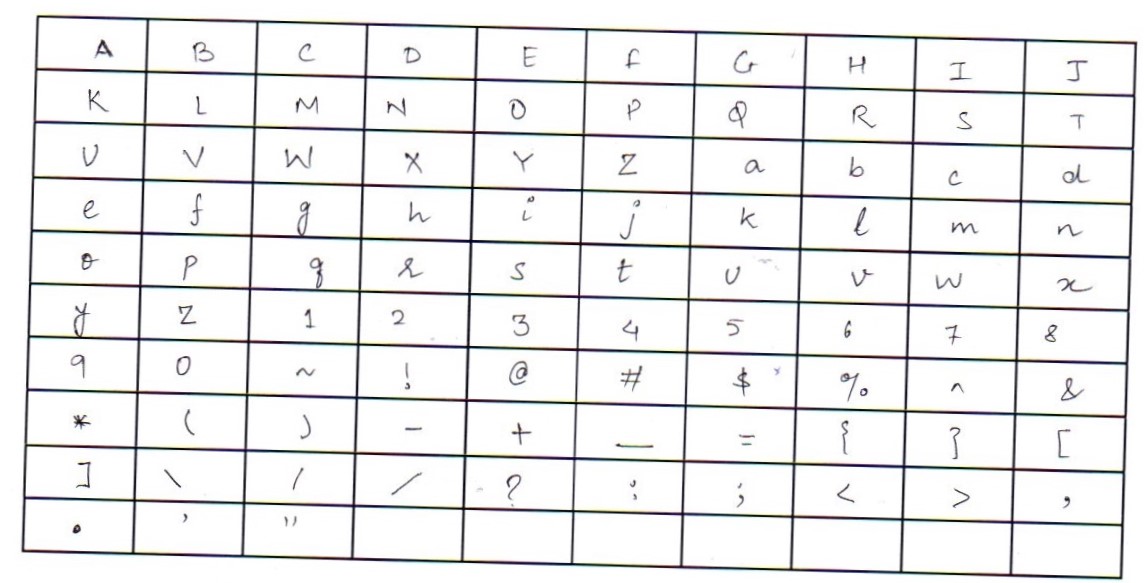 A B C D E F G H I J
K L M N O P Q R S T
U V W X Y Z a b c d
e f g h i j k l m n
o p q r s t u v w x
y z 1 2 3 4 5 6 7 8
9 0 ~ ! @ # $ % ^ &
* ( ) - + _ = { } [
] \ / / ? : ; < > ,
. ' "